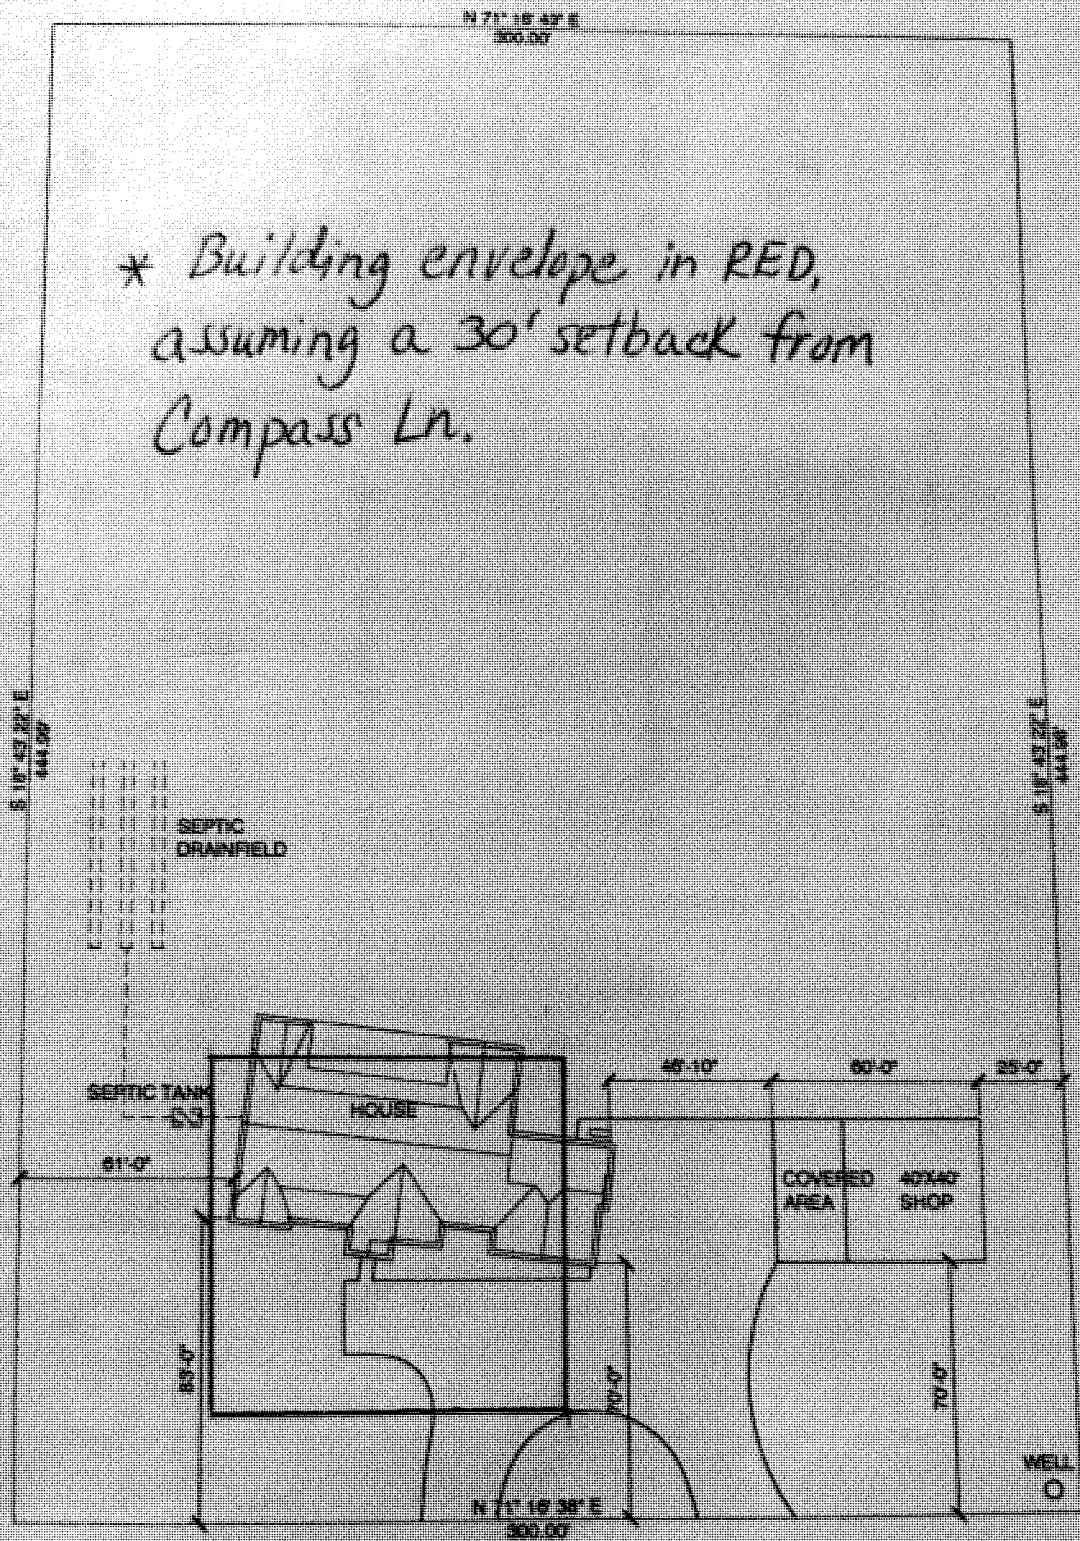 N 71° 16' 43" E
300.00'
* Building envelope in RED,
assuming a 30' setback from
Compass Ln.
S 18° 43' 22" E
444.99'
S 18° 43' 22" E
444.98'
SEPTIC
DRAINFIELD
SEPTIC TANK
HOUSE
46'-10"
60'-0"
25'-0"
61'-0"
COVERED
AREA
40'X40'
SHOP
83'-0"
70'-0"
70'-0"
WELL
N 71° 16' 38" E
300.00'